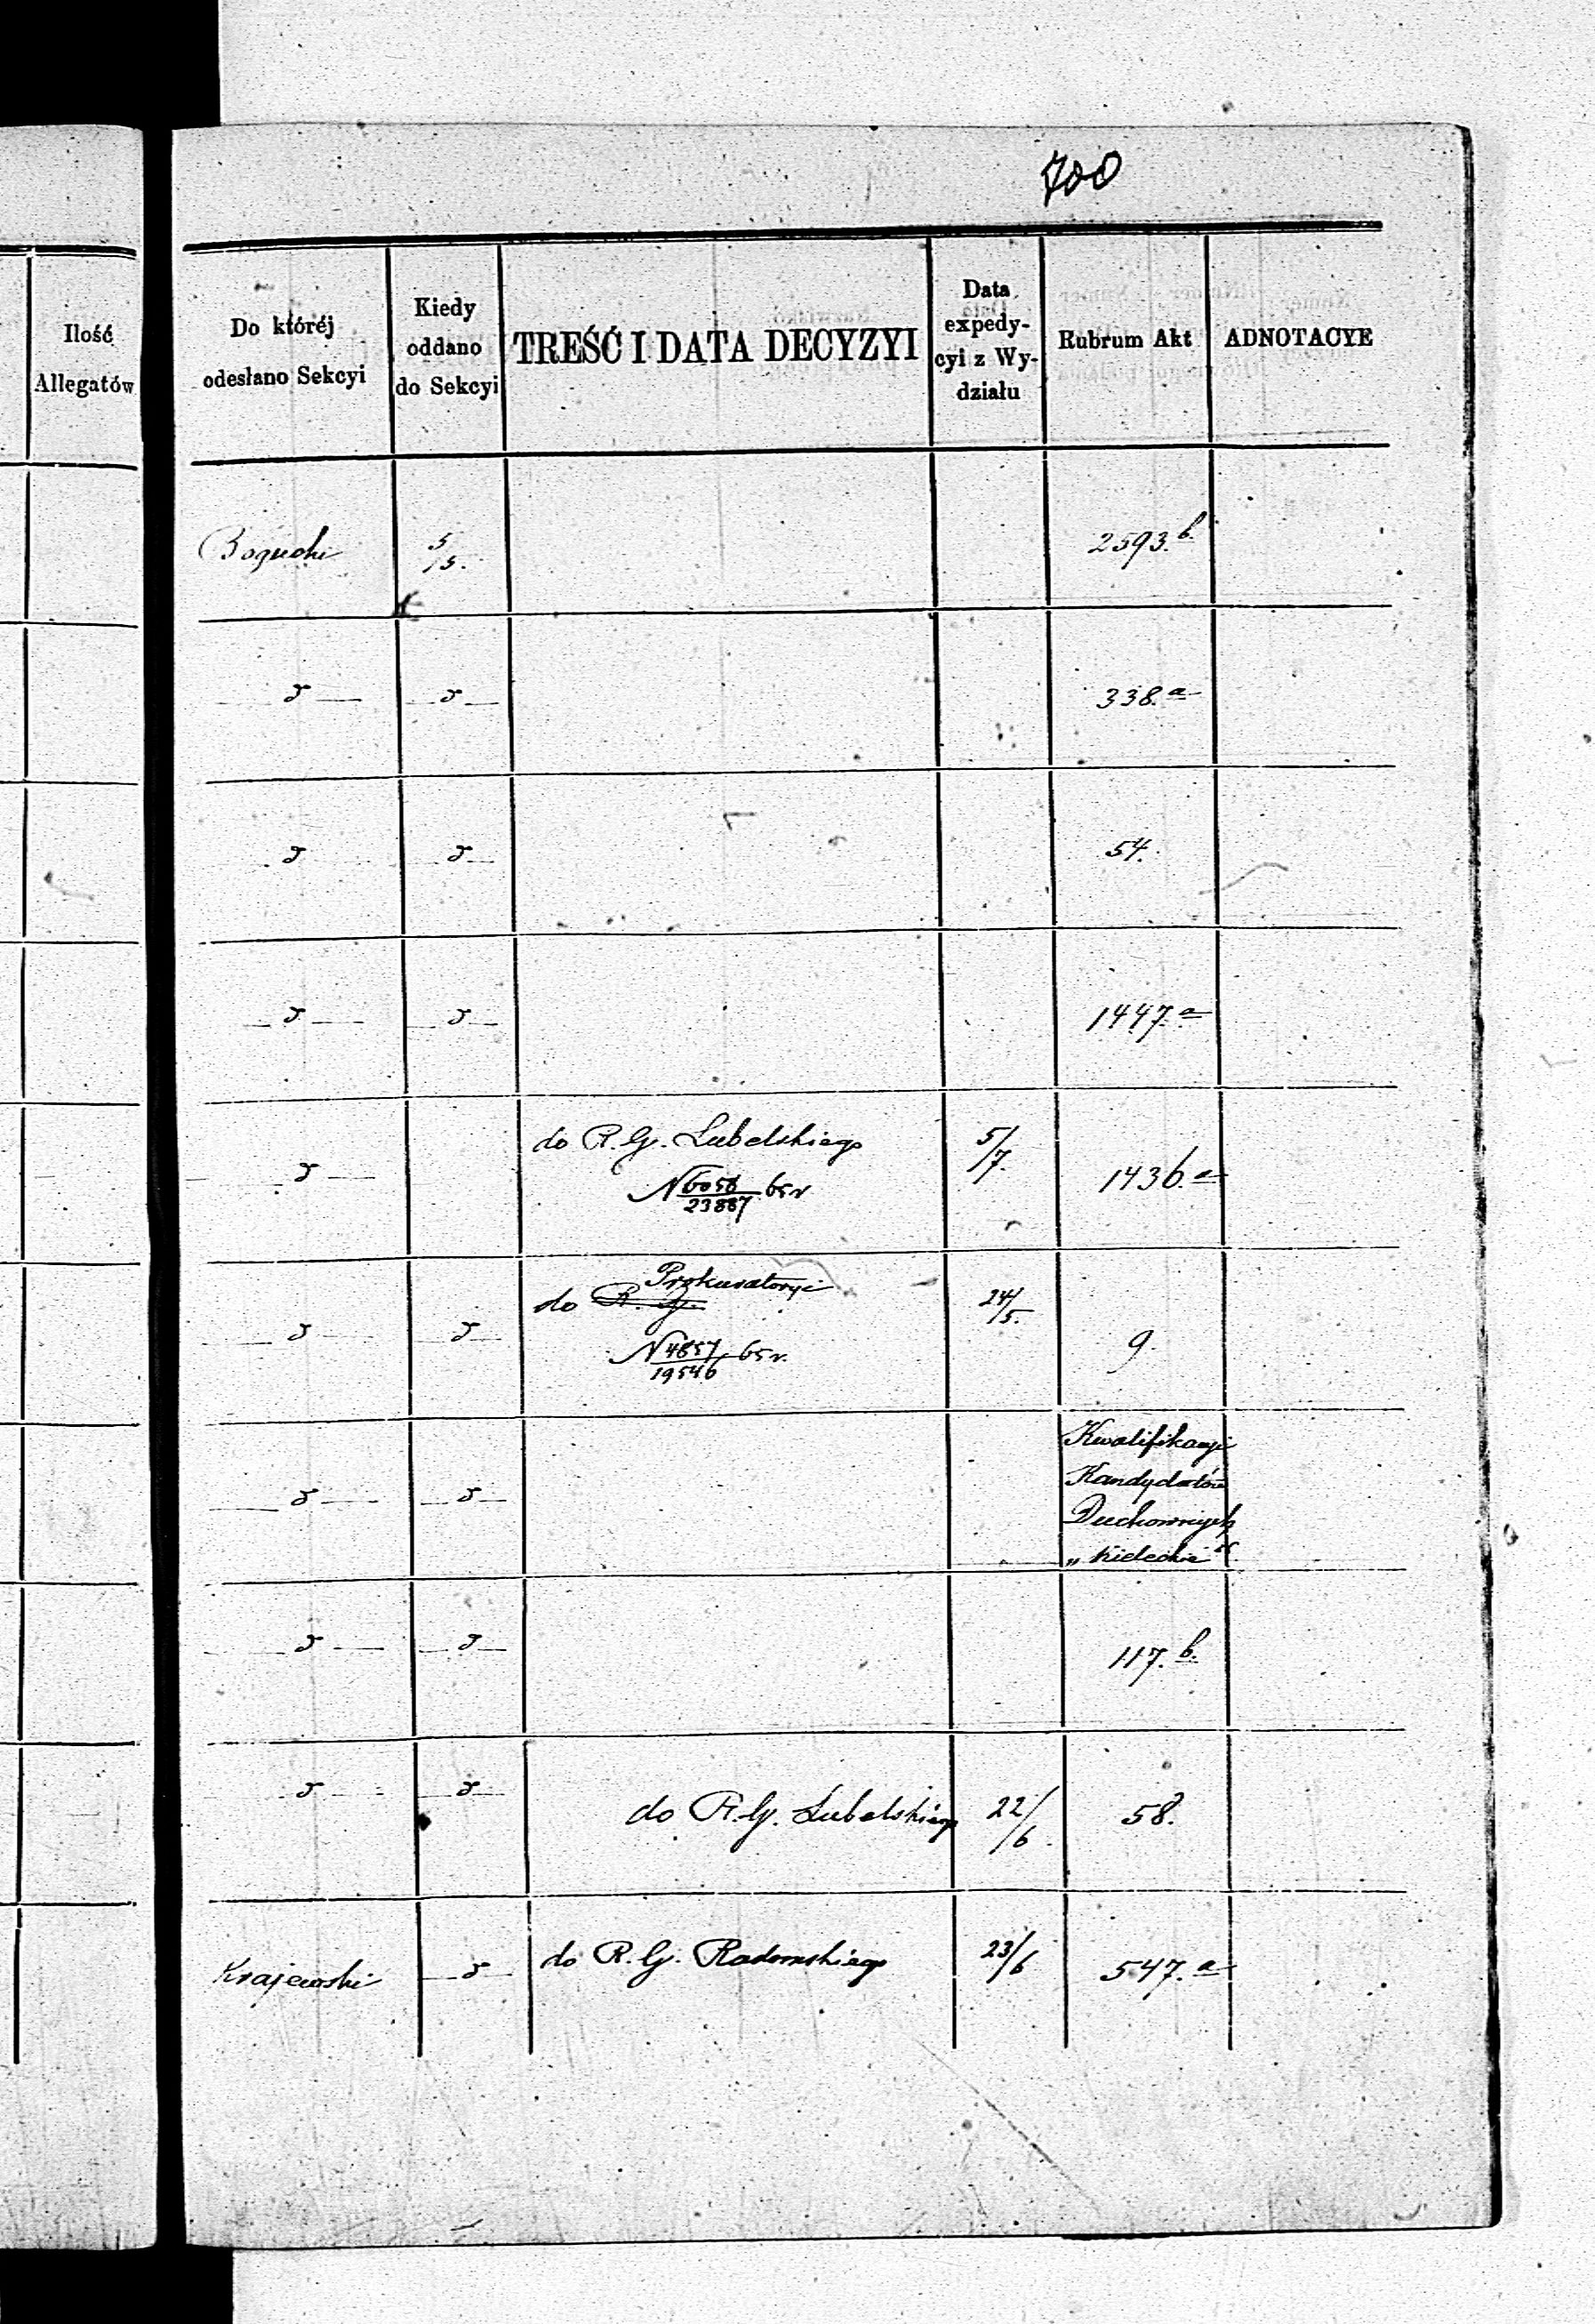 700
Ilość
Allegatów
Do któréj
odesłano Sekcyi
Kiedy
oddano
do Sekcyi
TREŚĆ I DATA DECYZYI
Data
expedy-
cyi z Wy-
działu
Rubrum Akt
ADNOTACYE
Bogucki 5/5. 2593.b.
338.a
54.
1447.a
do R. G. Lubelskiego 5/7. 1436.a
N 6056/23887 65 r
Prokuratoryi
do R. G. 24/5. 9.
N 4857/19546 65 r.
Kwalifikacyi
Kandydatów
Duchownych
„ kieleckie "
117.b.
do R. G. Lubelskiego 22/6. 58.
Krajewski do R. G. Radomskiego 23/6 547.a